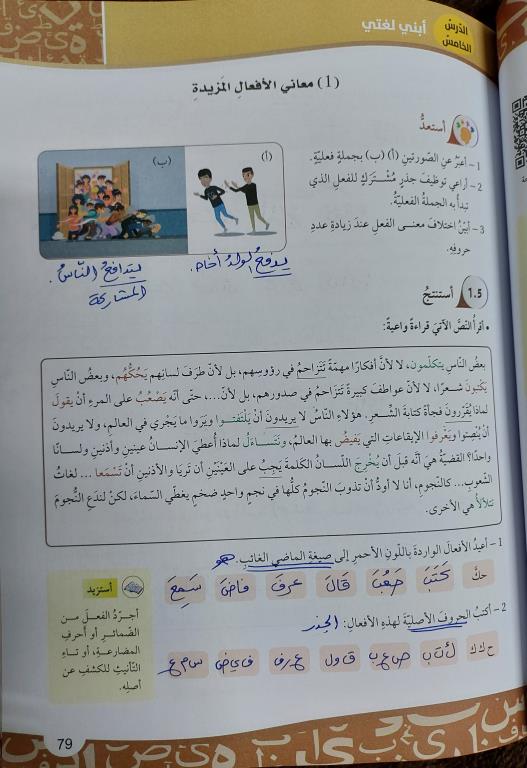 الدّرسُ
الخامس
أبني لغتي
(1) معاني الأفعال المَزيدةِ
أستعدُّ
1- أعبّرُ عنِ الصّورتينِ (أ) (ب) بجملةٍ فعليّةٍ.
2- أراعي توظيفَ جذرٍ مُشْتَرَكٍ للفعلِ الذي
تبدأُ به الجملةُ الفعليّةُ.
3- أبيّنُ اختلافَ معنى الفعلِ عندَ زيادةِ عددِ
حروفِه.
(أ)
(ب)
يدفعُ الولدُ أخاه.
يتدافعُ الناسُ.
المشاركة
1.5 أستنتجُ
• أقرأُ النّصَّ الآتيَ قراءةً واعيةً:
بعضُ النّاسِ يتكلّمون، لا لأنَّ أفكارًا مهمّةً تَتَزاحمُ في رؤوسِهم، بل لأنّ طرَفَ لسانِهم يَحُكُّهُم، وبعضُ النّاسِ
يَكتبونَ شعرًا، لا لأنّ عواطفَ كبيرةً تتزاحمُ في صدورِهم، بل لأنّ...، حتّى أنّه يَصْعُبُ على المرءِ أنْ يقولَ
لماذا يُقرّرونَ فجأةً كتابةَ الشّعرِ. هؤلاءِ النّاسُ لا يريدونَ أنْ يلتفتوا ويَرَوا ما يَجْري في العالمِ، ولا يريدونَ
أنْ يُنصِتوا ويَعْرفوا الإيقاعاتِ التي يَفيضُ بها العالمُ، ونَتَساءَلُ لماذا أُعطيَ الإنسانُ عينينِ وأذنينِ ولسانًا
واحدًا؟ القضيّةُ هيَ أنّه قبلَ أن يُخْرِجَ اللّسانُ الكلمةَ يَجِبُ على العَيْنَيْنِ أن تَرَيا والأذنينِ أنْ تَسْمَعا ... لغاتُ
الشّعوبِ... كالنّجومِ، أنا لا أودُّ أنْ تذوبَ النّجومُ كلُّها في نجمٍ واحدٍ ضخمٍ يغطّي السّماءَ، لكنْ لندَعِ النُّجومَ
تَتَلَألأُ هيَ الأخرى.
1- أعيدُ الأفعالَ الواردةَ باللّونِ الأحمرِ إلى صيغةِ الماضي الغائبِ. هو
حكّ كَتَبَ صَعُبَ قالَ عرفَ فاضَ سَمِعَ
2- أكتبُ الحروفَ الأصليّةَ لهذهِ الأفعالِ: الجذر
ح ك ك ك ت ب ص ع ب ق و ل ع ر ف ف ي ض س م ع
أستزيد
أجرّدُ الفعلَ من
الضّمائرِ أو أحرفِ
المضارعةِ، أو تاءِ
التّأنيثِ للكشفِ عن
أصلِه.
79